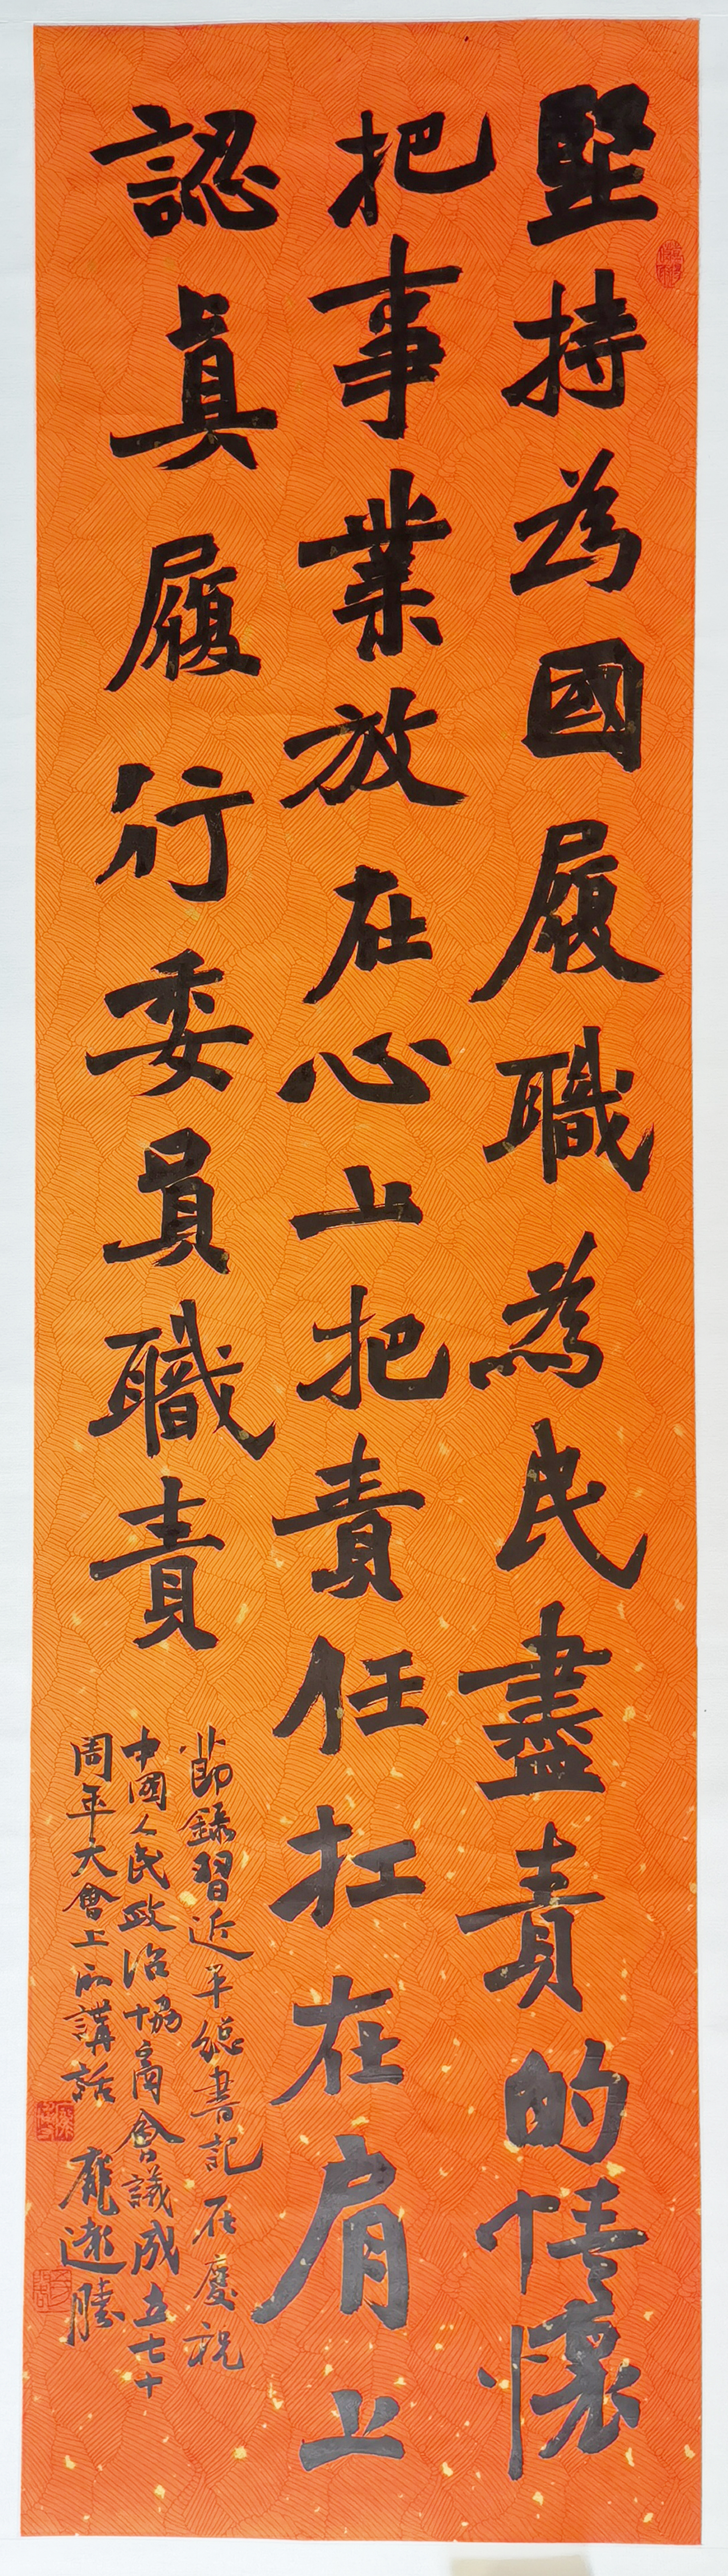 堅持為國履職為民盡責的情懷
把事業放在心上把責任扛在肩上
認眞履行委員職責
節錄習近平總書記在慶祝
中國人民政治協商會議成立七十
周年大會上的講話 龐遠騰